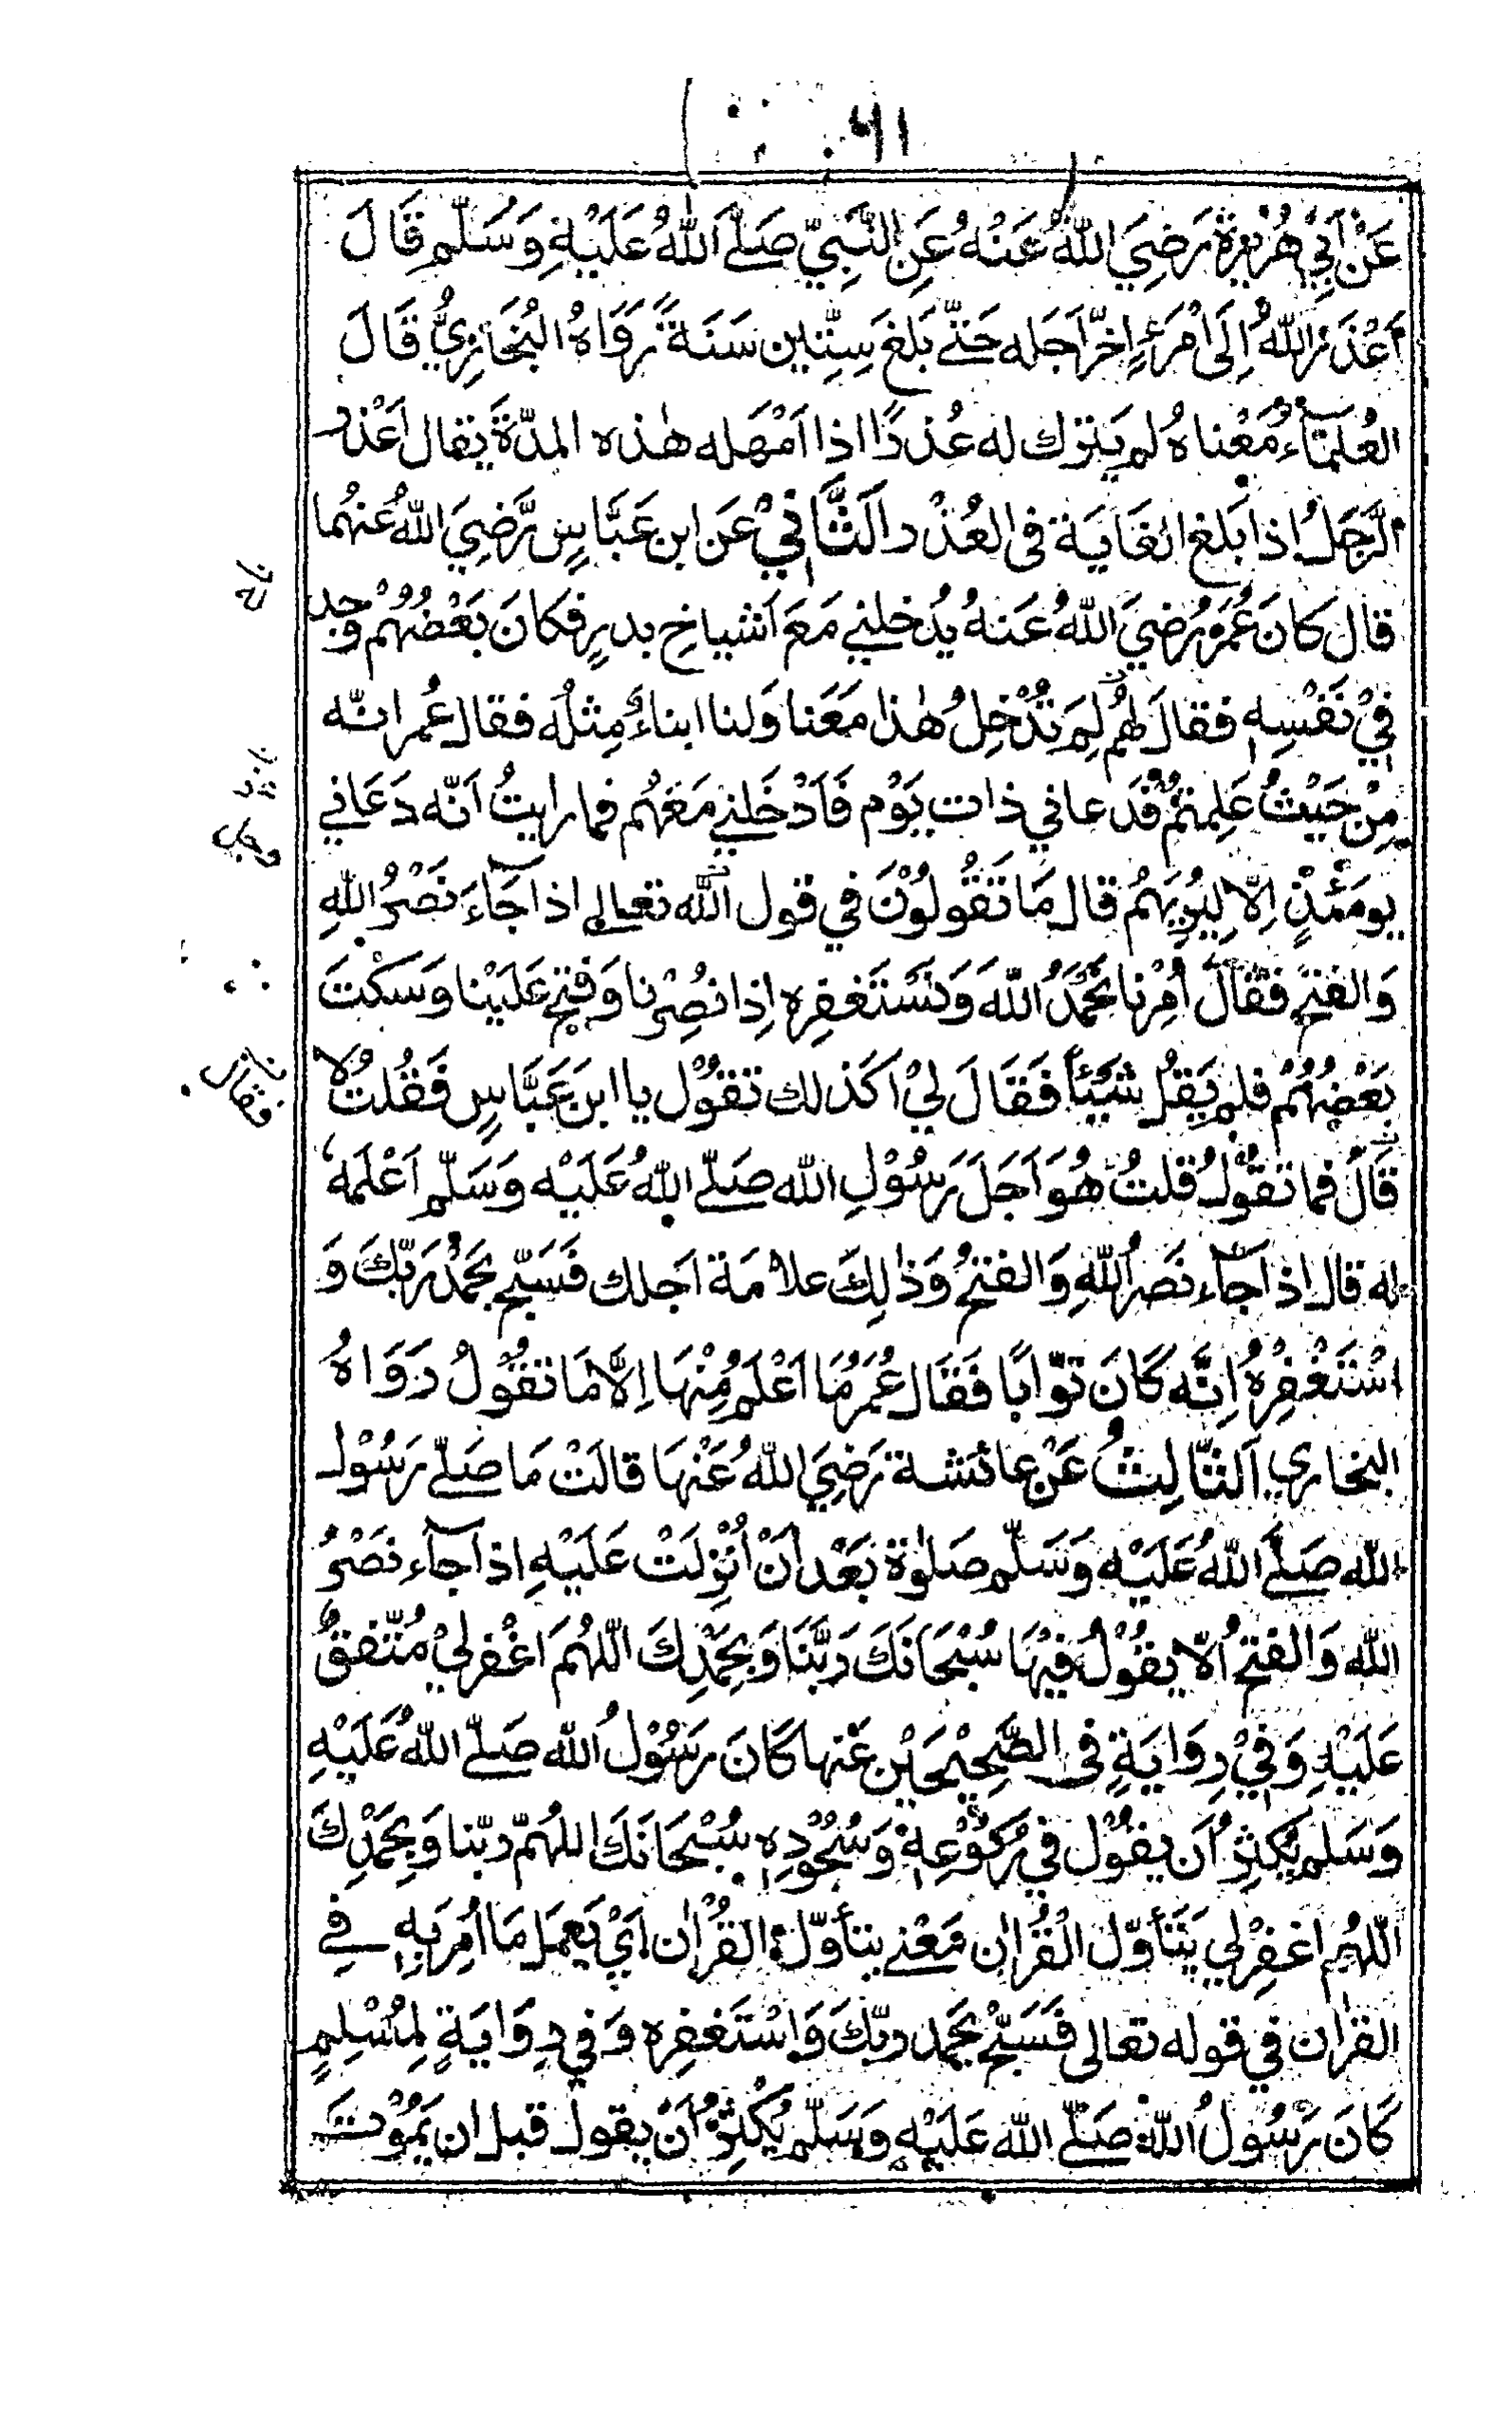 ٦١
عَنْ اَبِيْ هُرَيرَةَ رَضِيَ اللّٰهُ عَنْهُ عَنِ النَّبِيِّ صَلَّے اَللّٰهُ عَلَيْهِ وَسَلَّمِ قَالَ
اَعْذَرَ اللّٰهُ اِلَى امْرَءٍ اخّرَ اَجَله حَتّے بَلغَ سِتِّين سَنَةً رَوَاهُ البُخَارِيُّ قَالَ
العُلَمَآءُ مَعْناهُ لم يَترُك له عُذرًا اذا اَمْهَله هٰذه المدّةَ يقال اَعْذر
الرّجَلُ اِذا بَلغ الغَايَة فى العُذْر اَلثَّانِيْ عَن ابن عَبَّاسٍ رَّضِيَ اللّٰهُ عنهُما
قال كانَ عُمَرُ رَضيَ اللّٰهُ عَنهُ يُدْخلنِي مَعَ اَشياخِ بدرٍ فكانَ بَعْضُهُمْ وجد
فِيْ نَفْسِهٖ فقالَ لهُم لِمَ تُدْخِلُ هٰذا مَعَنا وَلنا ابناءٌ مِثلُه فقال عُمر انّه
مِنْ حَيْثُ عَلِمتُمْ فَدعاني ذات يَوْم فَاَدْخَلنِيْ مَعَهُم فما رايتُ اَنّه دَعَانِي
يومَئذٍ اِلّا لِيُرِيَهُم قال مَا تَقُولُوْنَ في قول اللّٰه تعالٰے اذا جَآءَ نَصْرُ اللّٰهِ
وَالفتح فقَالَ اُمِرْنا نَحْمَدُ اللّٰهَ وَنَسْتَغفِره اِذا نصِرنا وَفتِح عَلَيْنا وَسَكتَ
بَعْضُهُمْ فلم يَقلْ شَيْئًا فَقَالَ لِيْ اَكَذلك تقوْل يا ابنَ عَبَّاسٍ فَقُلتُ لا
قَالَ فما تقوْلُ قلتُ هُوَ اَجَلَ رَسُوْلِ اللّٰه صَلّے اللّٰهُ عَلَيْه وَسَلّم اَعْلَمَهٗ
له قال اِذا جَآء نَصَرُ اللّٰهِ وَالفتحُ وَذٰلِكَ علامَة اَجلك فَسَبّح بحَمْدِ رَبّكَ وَ
اسْتَغْفِرْهُ اِنَّه كَانَ تَوّابًا فَقَال عُمَرُ مَا اَعْلَمُ مِنْهَا اِلَّا مَا تقوْلُ رَوَاهُ
البخاري اَلثّالِثُ عَنْ عائشة رَضِيَ اللّٰهُ عَنْهَا قالَتْ مَا صَلّے رَسُوْل
اللّٰه صَلَّے اللّٰهُ عَلَيْه وَسَلّم صَلٰوة بَعْدَ اَنْ اُنْزِلَتْ عَلَيْهِ اذا جَآءَ نَصْرُ
اللّٰه وَالفتحُ اِلّا يقوْلُ فيْهَا سُبْحَانَكَ رَبَّنَا وَبِحَمْدِكَ اللّهُمَ اغْفرلِيْ مُتّفقٌ
عَلَيْهِ وَفِيْ رِوَايَةٍ فى الصَّحِيْحَيْن عَنها كَانَ رَسُوْلُ اللّٰه صَلّے اللّٰهُ عَلَيْهِ
وَسَلم يُكثِرُ اَن يقوْل في رُكوْعِهٖ وَسُجُوْدِهٖ سُبْحَانَكَ اللهُمّ ربّنا وَبِحَمْدِكَ
اللّهُم اغفِرْلي يَتَأوّل القُرْاٰن مَعْنے يتأوّلُ القُرْاٰن اَيْ يَعمَل مَا اُمِر بِهٖ فِے
القراٰن في قوله تعالى فَسَبّحْ بحَمد ربّكَ وَاسْتَغفِره وَفي رِوَايَةٍ لِمُسْلِمٍ
كَانَ رَسُولُ اللّٰه صَلّے اللّٰه عَلَيْهِ وَسَلّم يُكْثِرُ اَنْ يقول قبل ان يَمُوْتَ
فقال